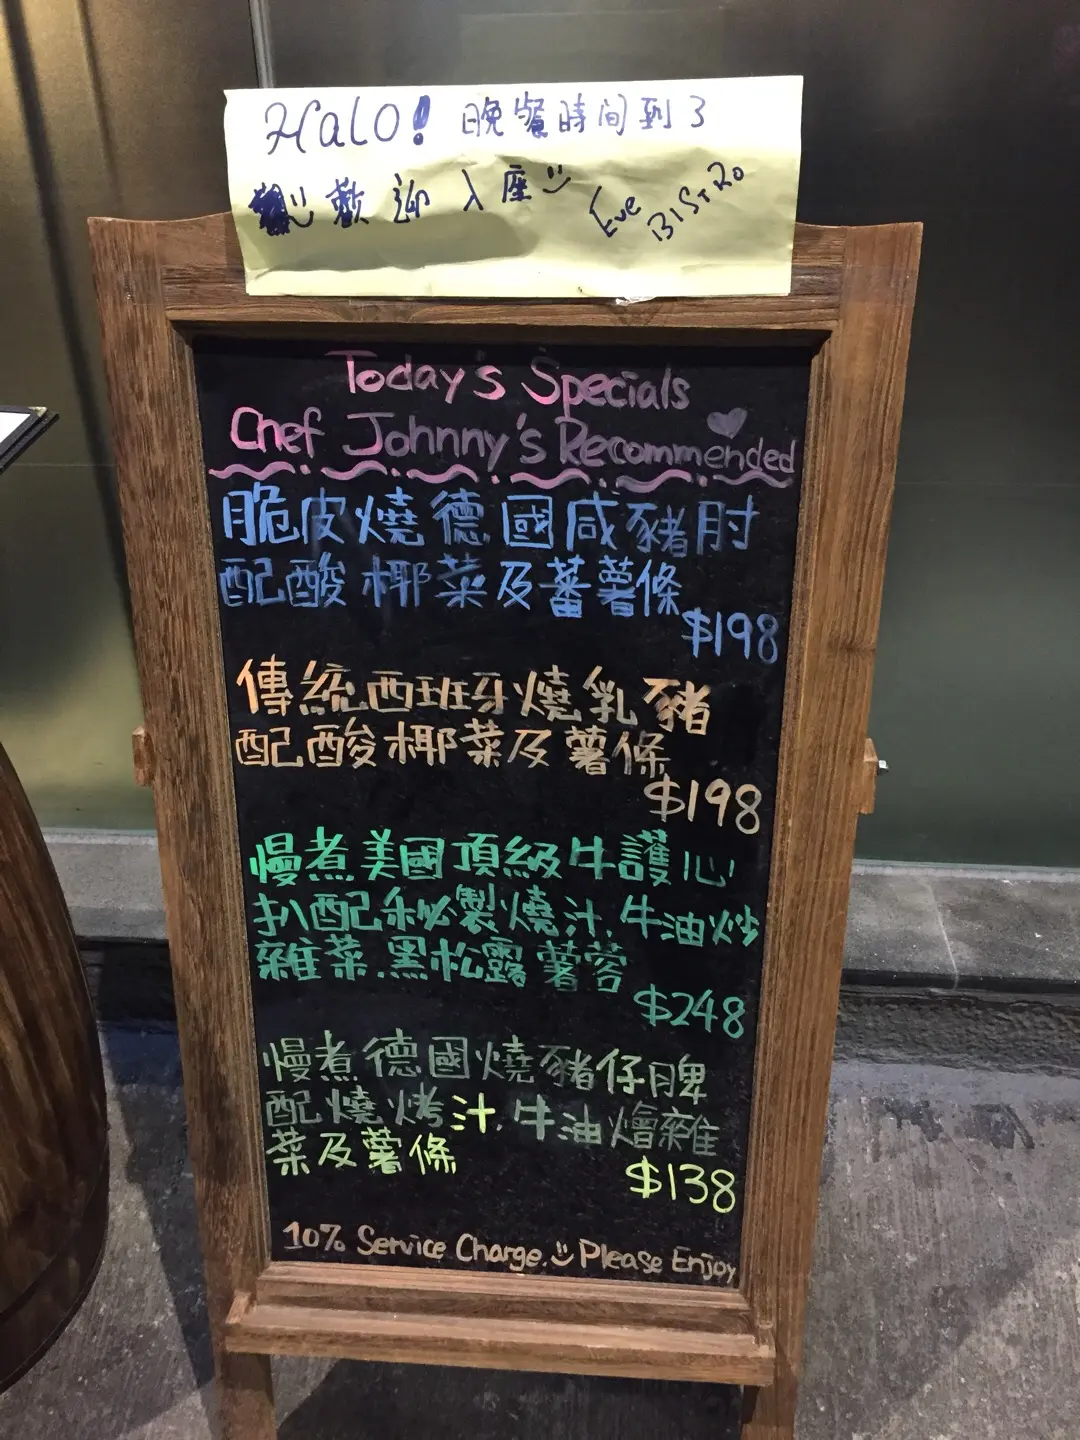 Halo! 晚餐時間到了
歡迎入座 Eve BISTRO
Today's Specials
Chef Johnny's Recommended
脆皮燒德國咸豬肘
配酸椰菜及蕃薯條
$198
傳統西班牙燒乳豬
配酸椰菜及薯條
$198
慢煮美國頂級牛護心
扒配秘製燒汁.牛油炒
雜菜.黑松露薯蓉
$248
慢煮德國燒豬仔脾
配燒烤汁.牛油燴雜
菜及薯條
$138
10% Service Charge. Please Enjoy